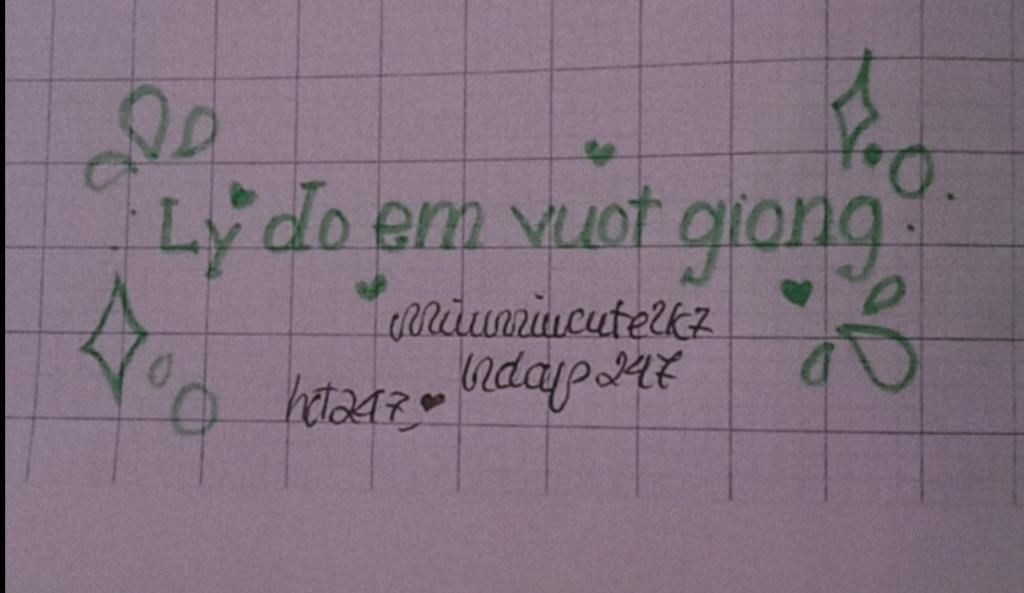 Ly do em vuot giong
miumiucute2k7
hdap247
hct247